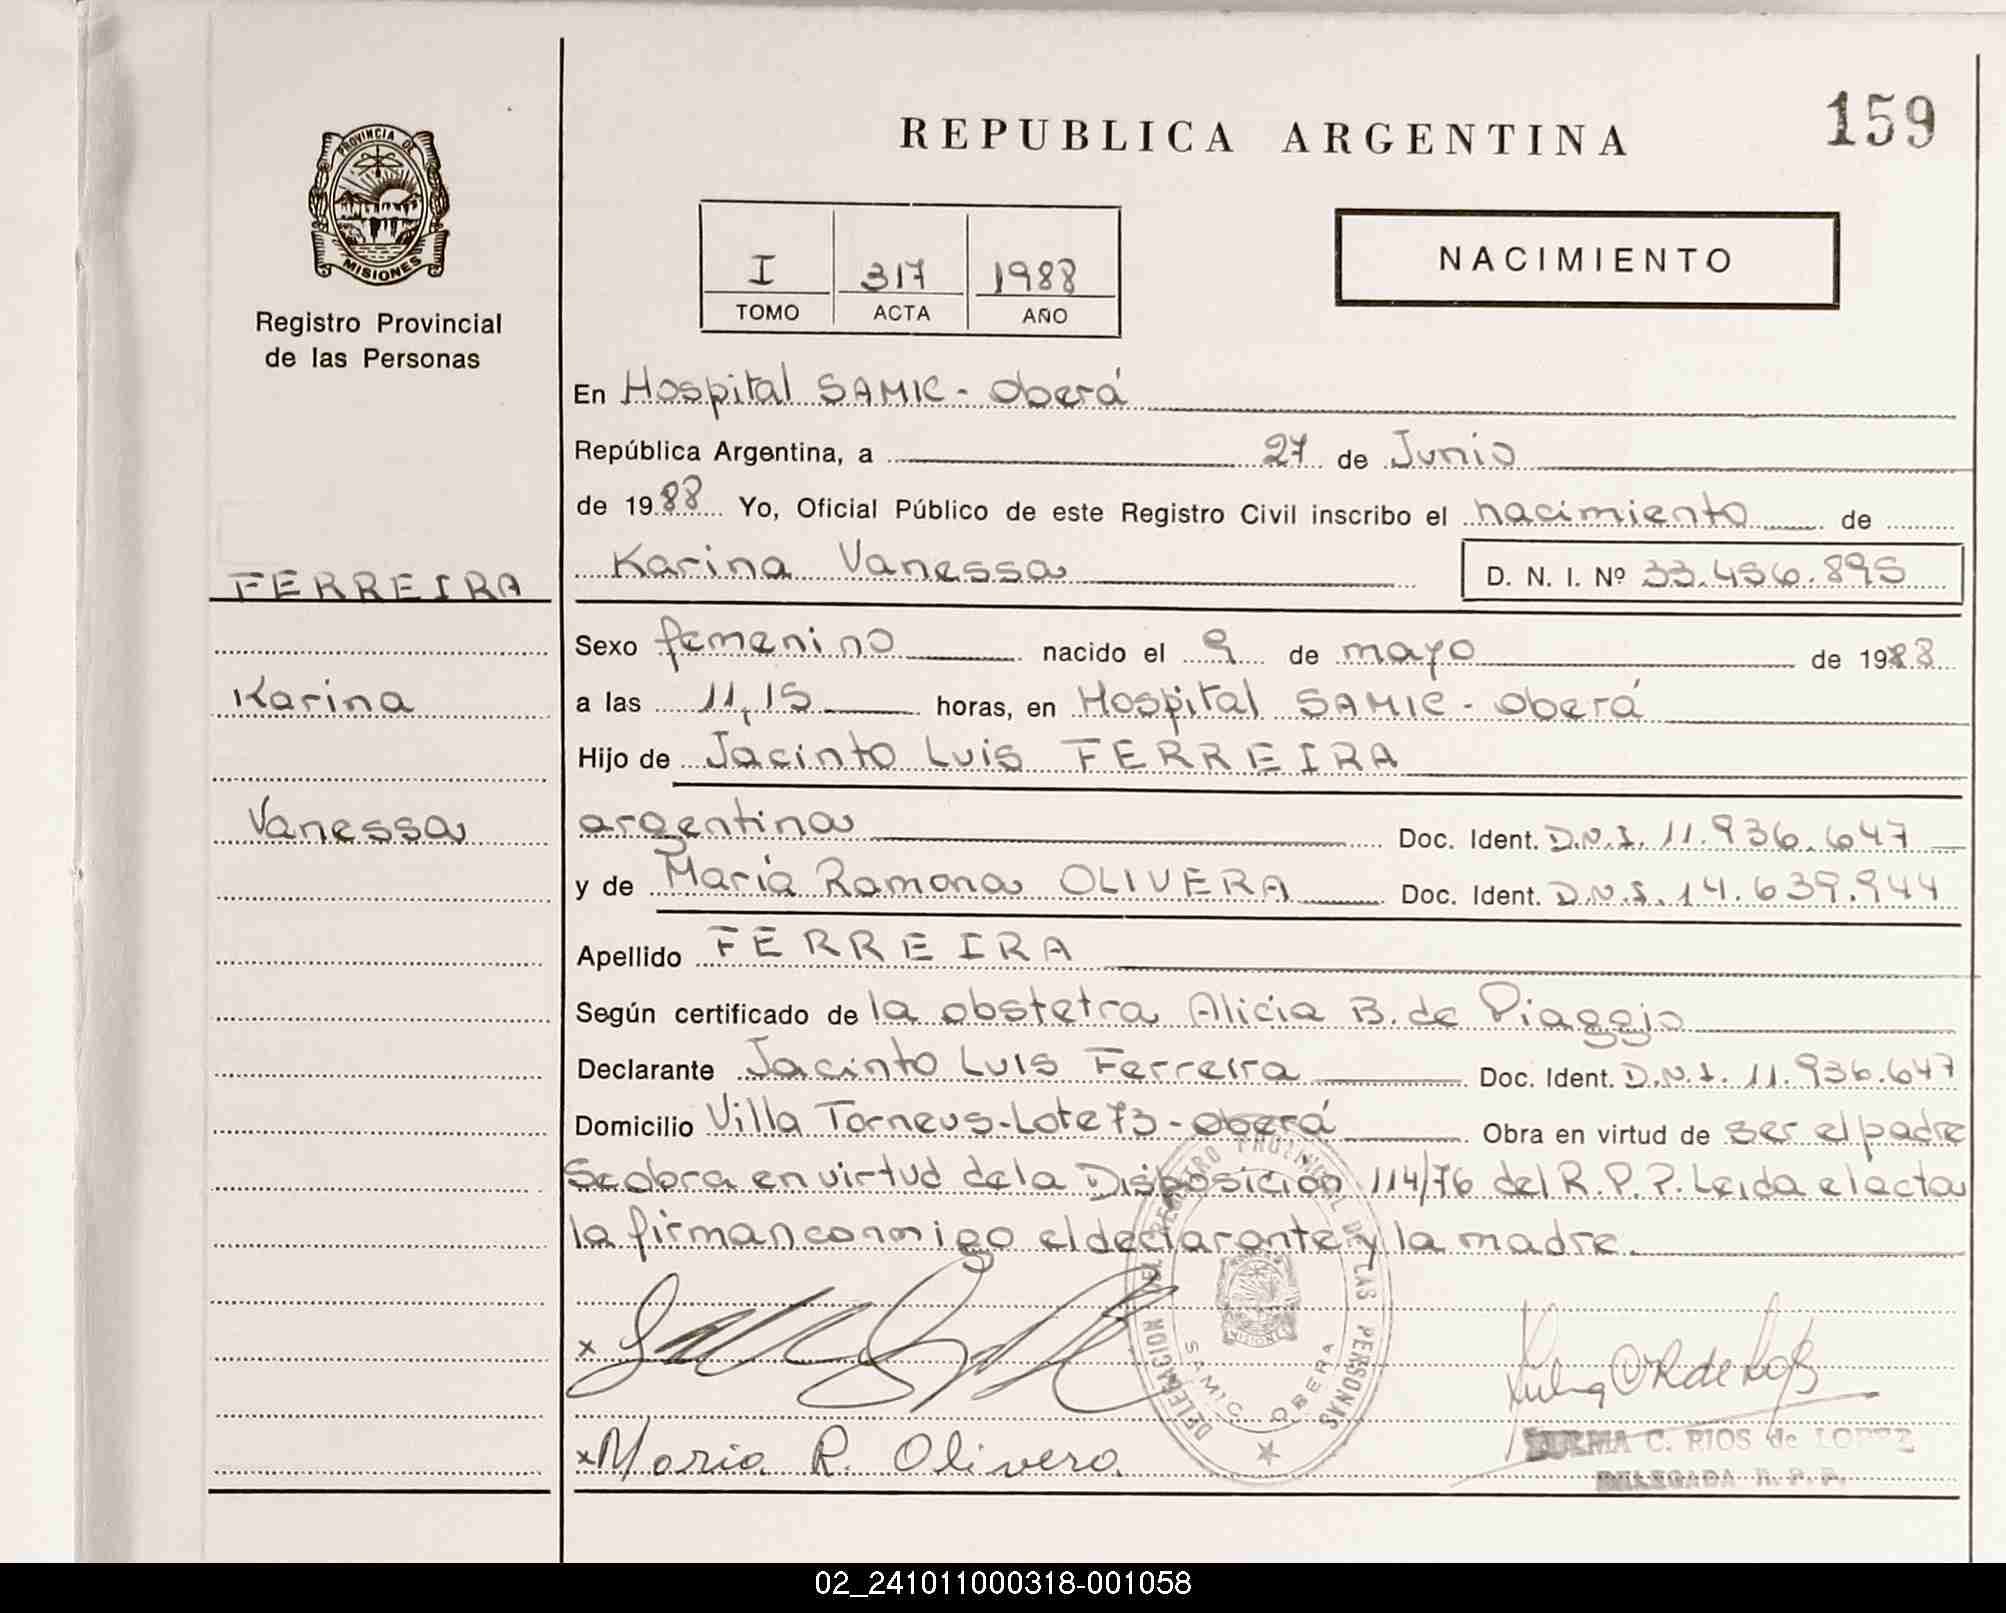 159
REPUBLICA ARGENTINA
PROVINCIA DE
MISIONES
Registro Provincial
de las Personas
NACIMIENTO
I 317 1988
TOMO ACTA AÑO
En Hospital SAMIC - Oberá
República Argentina, a 27 de Junio
de 1988 Yo, Oficial Público de este Registro Civil inscribo el nacimiento de
Karina Vanessa D. N. I. Nº 33.456.895
FERREIRA
Karina
Vanessa
Sexo femenino nacido el 9 de mayo de 1988
a las 11,15 horas, en Hospital SAMIC - Oberá
Hijo de Jacinto Luis FERREIRA
argentina Doc. Ident. D.N.I. 11.936.647
y de María Ramona OLIVERA Doc. Ident. D.N.I. 14.639.944
Apellido FERREIRA
Según certificado de la obstetra Alicia B. de Piaggio
Declarante Jacinto Luis Ferreira Doc. Ident. D.N.I. 11.936.647
Domicilio Villa Torneus - Lote 73 - Oberá Obra en virtud de ser el padre
Se obra en virtud de la Disposición 114/76 del R.P.P. Leida el acta
la firman conmigo el declarante y la madre.
DELEGACION DEL REGISTRO PROVINCIAL DE LAS PERSONAS
MISIONES
SAMIC OBERA
x
x Maria R. Olivera
C. RIOS de LOPEZ
DELEGADA R. P. P.
02_241011000318-001058